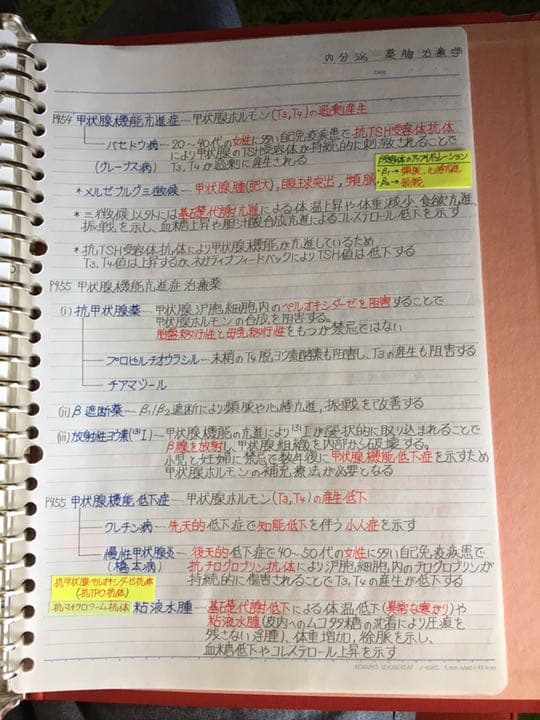 内分泌 薬物治療学
Date
P454 甲状腺機能亢進症 — 甲状腺ホルモン(T3,T4)の過剰産生
バセドウ病 — 20〜40代の女性に多い自己免疫疾患で抗TSH受容体抗体
(グレーブス病) により甲状腺のTSH受容体が持続的に刺激されることで
T3,T4が過剰に産生される
β受容体のアップレギュレーション
・β1→頻脈,心悸亢進
・β2→振戦
* メルゼブルグ三徴候 — 甲状腺腫(肥大),眼球突出,頻脈
* 三徴候以外には基礎代謝亢進による体温上昇や体重減少,食欲亢進,
振戦を示し、血糖上昇や胆汁酸合成亢進によるコレステロール低下を示す
* 抗TSH受容体抗体により甲状腺機能が亢進しているため
T3,T4値は上昇するが、ネガティブフィードバックによりTSH値は低下する
P455 甲状腺機能亢進症 治療薬
(i) 抗甲状腺薬 — 甲状腺ろ胞細胞内のペルオキシダーゼを阻害することで
甲状腺ホルモンの合成を阻害する。
胎盤移行性と母乳移行性をもつが禁忌ではない
プロピルチオウラシル — 末梢のT4脱ヨウ素酵素も阻害し、T3の産生も阻害する
チアマゾール
(ii) β遮断薬 — β1/β2遮断により頻脈や心悸亢進,振戦を改善する
(iii) 放射性ヨウ素(131I) — 甲状腺機能の亢進により131Iが選択的に取り込まれることで
β線を放射し、甲状腺組織を内部から破壊する。
小児と妊婦に禁忌で数年後に甲状腺機能低下症を示すため
甲状腺ホルモンの補充療法が必要となる
P455 甲状腺機能低下症 — 甲状腺ホルモン(T3,T4)の産生低下
クレチン病 — 先天的低下症で知能低下を伴う小人症を示す
慢性甲状腺炎 — 後天的低下症で40〜50代の女性に多い自己免疫疾患で
(橋本病) 抗チログロブリン抗体によりろ胞細胞内のチログロブリンが
持続的に傷害されることでT3,T4の産生が低下する
抗甲状腺ペルオキシダーゼ抗体
(抗TPO抗体)
抗マイクロゾーム抗体
粘液水腫 — 基礎代謝低下による体温低下(異常な寒がり)や
粘液水腫(皮内へのムコ多糖の沈着により圧痕を
残さない浮腫)、体重増加,徐脈を示し、
血糖低下やコレステロール上昇を示す
KOKUYO LOOSE-LEAF